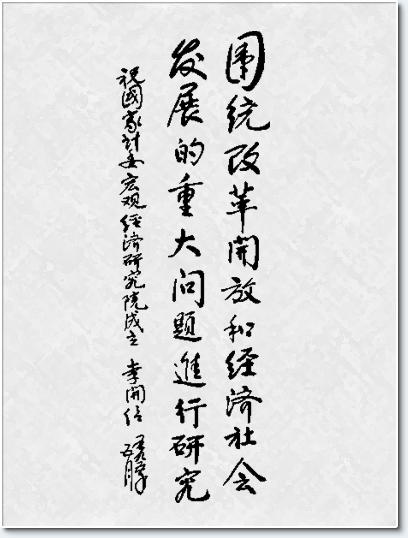 围绕改革開放和经济社会
发展的重大问题進行研究
祝國家计委宏观经济研究院成立 李開信 五月